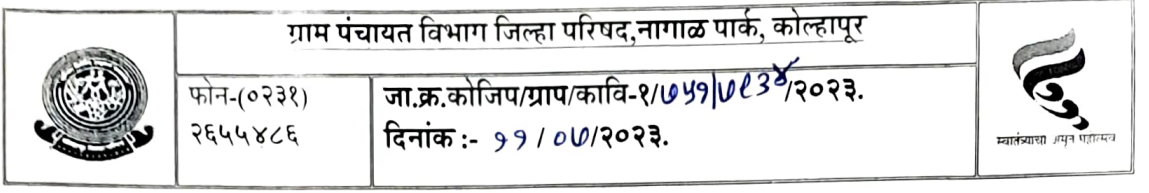 ग्राम पंचायत विभाग जिल्हा परिषद,नागाळ पार्क, कोल्हापूर
फोन-(०२३१)
२६५५४८६
जा.क्र.कोजिप/ग्राप/कावि-१/७५१/७९३४/२०२३.
दिनांक :- ११/०७/२०२३.
स्वातंत्र्याचा अमृत महोत्सव